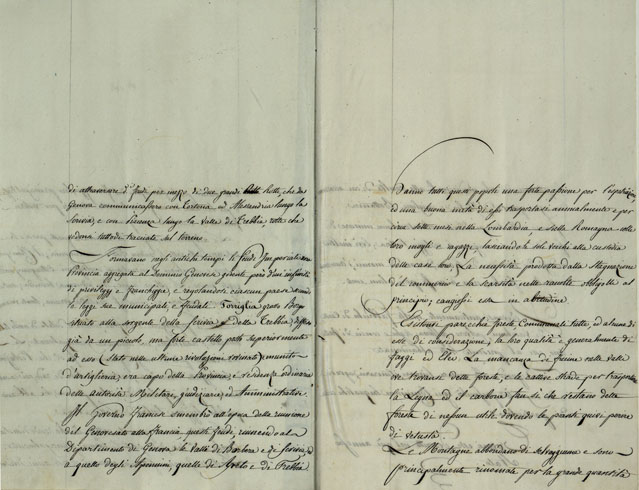 di attraversare i feudi per mezzo di due grandi Rotte, che da
Genova communicassero con Tortona, ed Alessandria lungo la
Scrivia, e con Piacenza lungo la Valle di Trebbia, rotte che
vedonsi tutt'ora tracciate sul terreno.
Formavano negli antichi tempi li Feudi Imperiali una
Provincia aggregata al Dominio Genovese, godente però d'un'infinità
di privileggi e franchiggie, e regolandosi ciascun paese secondo
le leggi sue municipali, e feudali. Torriglia, grosso Borgo
situato alla sorgente della Scrivia, e della Trebbia, difeso
già da un piccolo, ma forte castello posto superiormente
ad esso (stato nelle ultime rivoluzioni rovinato) e munito
d'artiglieria, era capo della Provincia, e residenza ordinaria
delle autorità Militare, giudiziaria, ed Amministrativa.
Il Governo Francese smembrò all'epoca della riunione
del Genovesato alla Francia, questi feudi, riunendo al
Dipartimento di Genova le Valli di Borbera e di Scrivia,
a quello degli Apennini, quelle di Aveto e di Trebbia
Hanno tutti questi popoli una forte passione per l'espatriazione,
ed una buona metà di essi trasportasi annualmente per
circa sette mesi nella Lombardia, e nella Romagna colle
loro mogli e ragazzi, lasciando li soli vecchi alla custodia
delle case loro. La necessità prodotta dalla stagnazione
del commercio e la scarsità nelle raccolte obbligolli al
principio; cangiossi essa in abitudine.
Esistono parecchie foreste Communali tutte, ed alcune di
esse di considerazione; la loro qualità è generalmente di
faggi ed Elci. La mancanza di fucine nelle valli
ove trovansi delle foreste, e le cattive strade per trasportare
la Legna, ed il carbone fan sì che restano delle
foreste di nessun utile dovendo le piante quivi perire
di vetustà.
Le Montagne abbondano di selvaggiume e sono
principalmente rinomate per la grande quantità